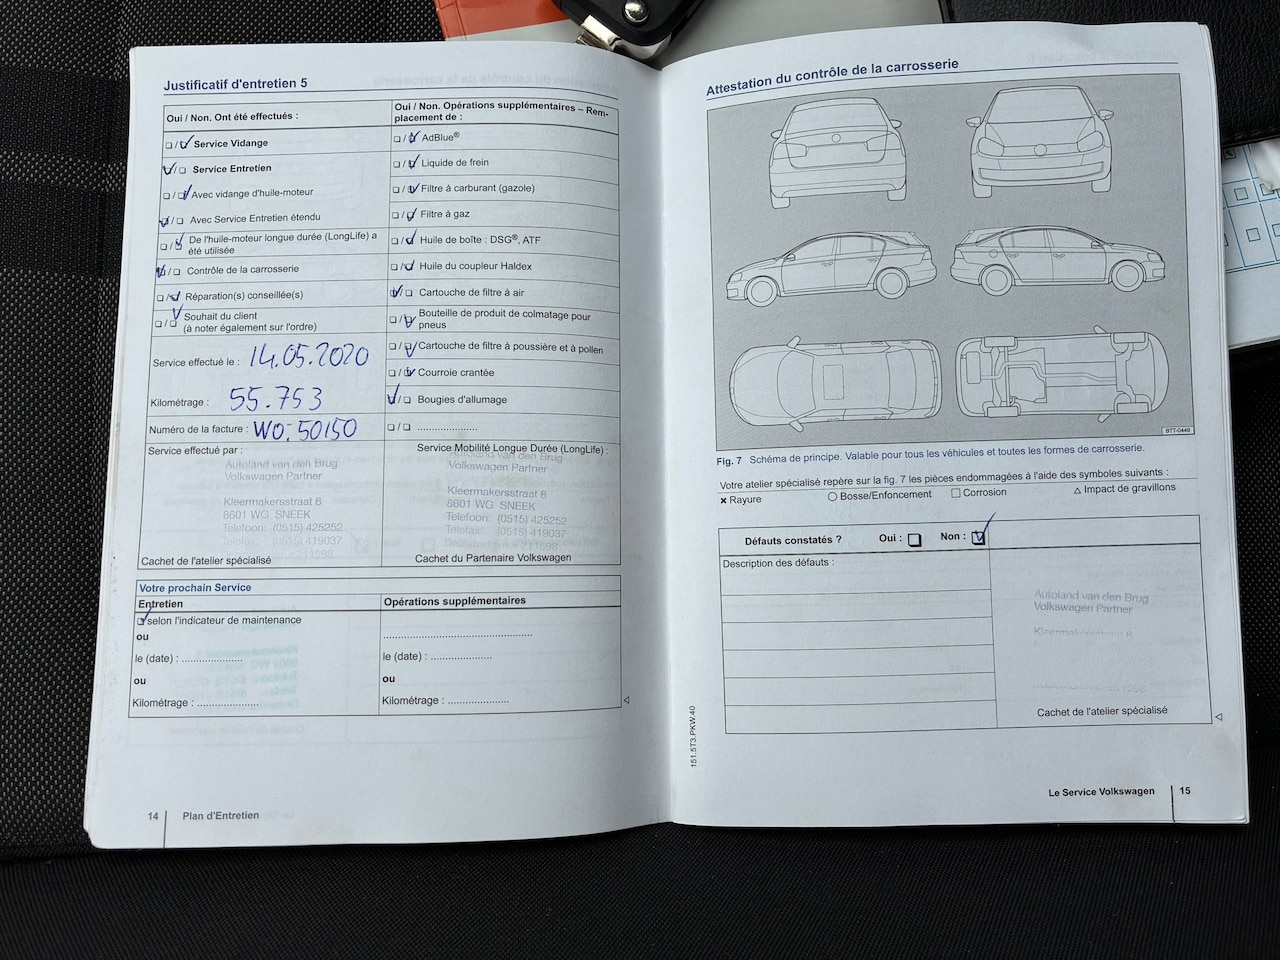 Justificatif d'entretien 5
Oui / Non. Ont été effectués :
☐ / ☑ Service Vidange
☑ / ☐ Service Entretien
☐ / ☑ Avec vidange d'huile-moteur
☑ / ☐ Avec Service Entretien étendu
☐ / ☑ De l'huile-moteur longue durée (LongLife) a
été utilisée
☑ / ☐ Contrôle de la carrosserie
☐ / ☑ Réparation(s) conseillée(s)
☐ / ☑ Souhait du client
(à noter également sur l'ordre)
Service effectué le : 14.05.2020
Kilométrage : 55.753
Numéro de la facture : WO: 50150
Oui / Non. Opérations supplémentaires – Rem-
placement de :
☐ / ☑ AdBlue®
☐ / ☑ Liquide de frein
☐ / ☑ Filtre à carburant (gazole)
☐ / ☑ Filtre à gaz
☐ / ☑ Huile de boîte : DSG®, ATF
☐ / ☑ Huile du coupleur Haldex
☑ / ☐ Cartouche de filtre à air
☐ / ☑ Bouteille de produit de colmatage pour
pneus
☐ / ☑ Cartouche de filtre à poussière et à pollen
☐ / ☑ Courroie crantée
☑ / ☐ Bougies d'allumage
☐ / ☐ ....................
Service effectué par :
Autoland van den Brug
Volkswagen Partner
Kleermakersstraat 6
8601 WG SNEEK
Telefoon: (0515) 425252
Telefax: (0515) 419037
Cachet de l'atelier spécialisé
Service Mobilité Longue Durée (LongLife) :
Autoland van den Brug
Volkswagen Partner
Kleermakersstraat 6
8601 WG SNEEK
Telefoon: (0515) 425252
Telefax: (0515) 419037
Cachet du Partenaire Volkswagen
Votre prochain Service
Entretien
☑ selon l'indicateur de maintenance
ou
le (date) : ....................
ou
Kilométrage : ....................
Opérations supplémentaires
..................................................
le (date) : ....................
ou
Kilométrage : ....................
14 Plan d'Entretien
Attestation du contrôle de la carrosserie
BTT-0449
Fig. 7 Schéma de principe. Valable pour tous les véhicules et toutes les formes de carrosserie.
Votre atelier spécialisé repère sur la fig. 7 les pièces endommagées à l'aide des symboles suivants :
✖ Rayure ○ Bosse/Enfoncement □ Corrosion △ Impact de gravillons
Défauts constatés ? Oui : ☐ Non : ☑
Description des défauts :
Autoland van den Brug
Volkswagen Partner
Kleermakersstraat 6
Cachet de l'atelier spécialisé
151.5T3.PKW.40
Le Service Volkswagen 15